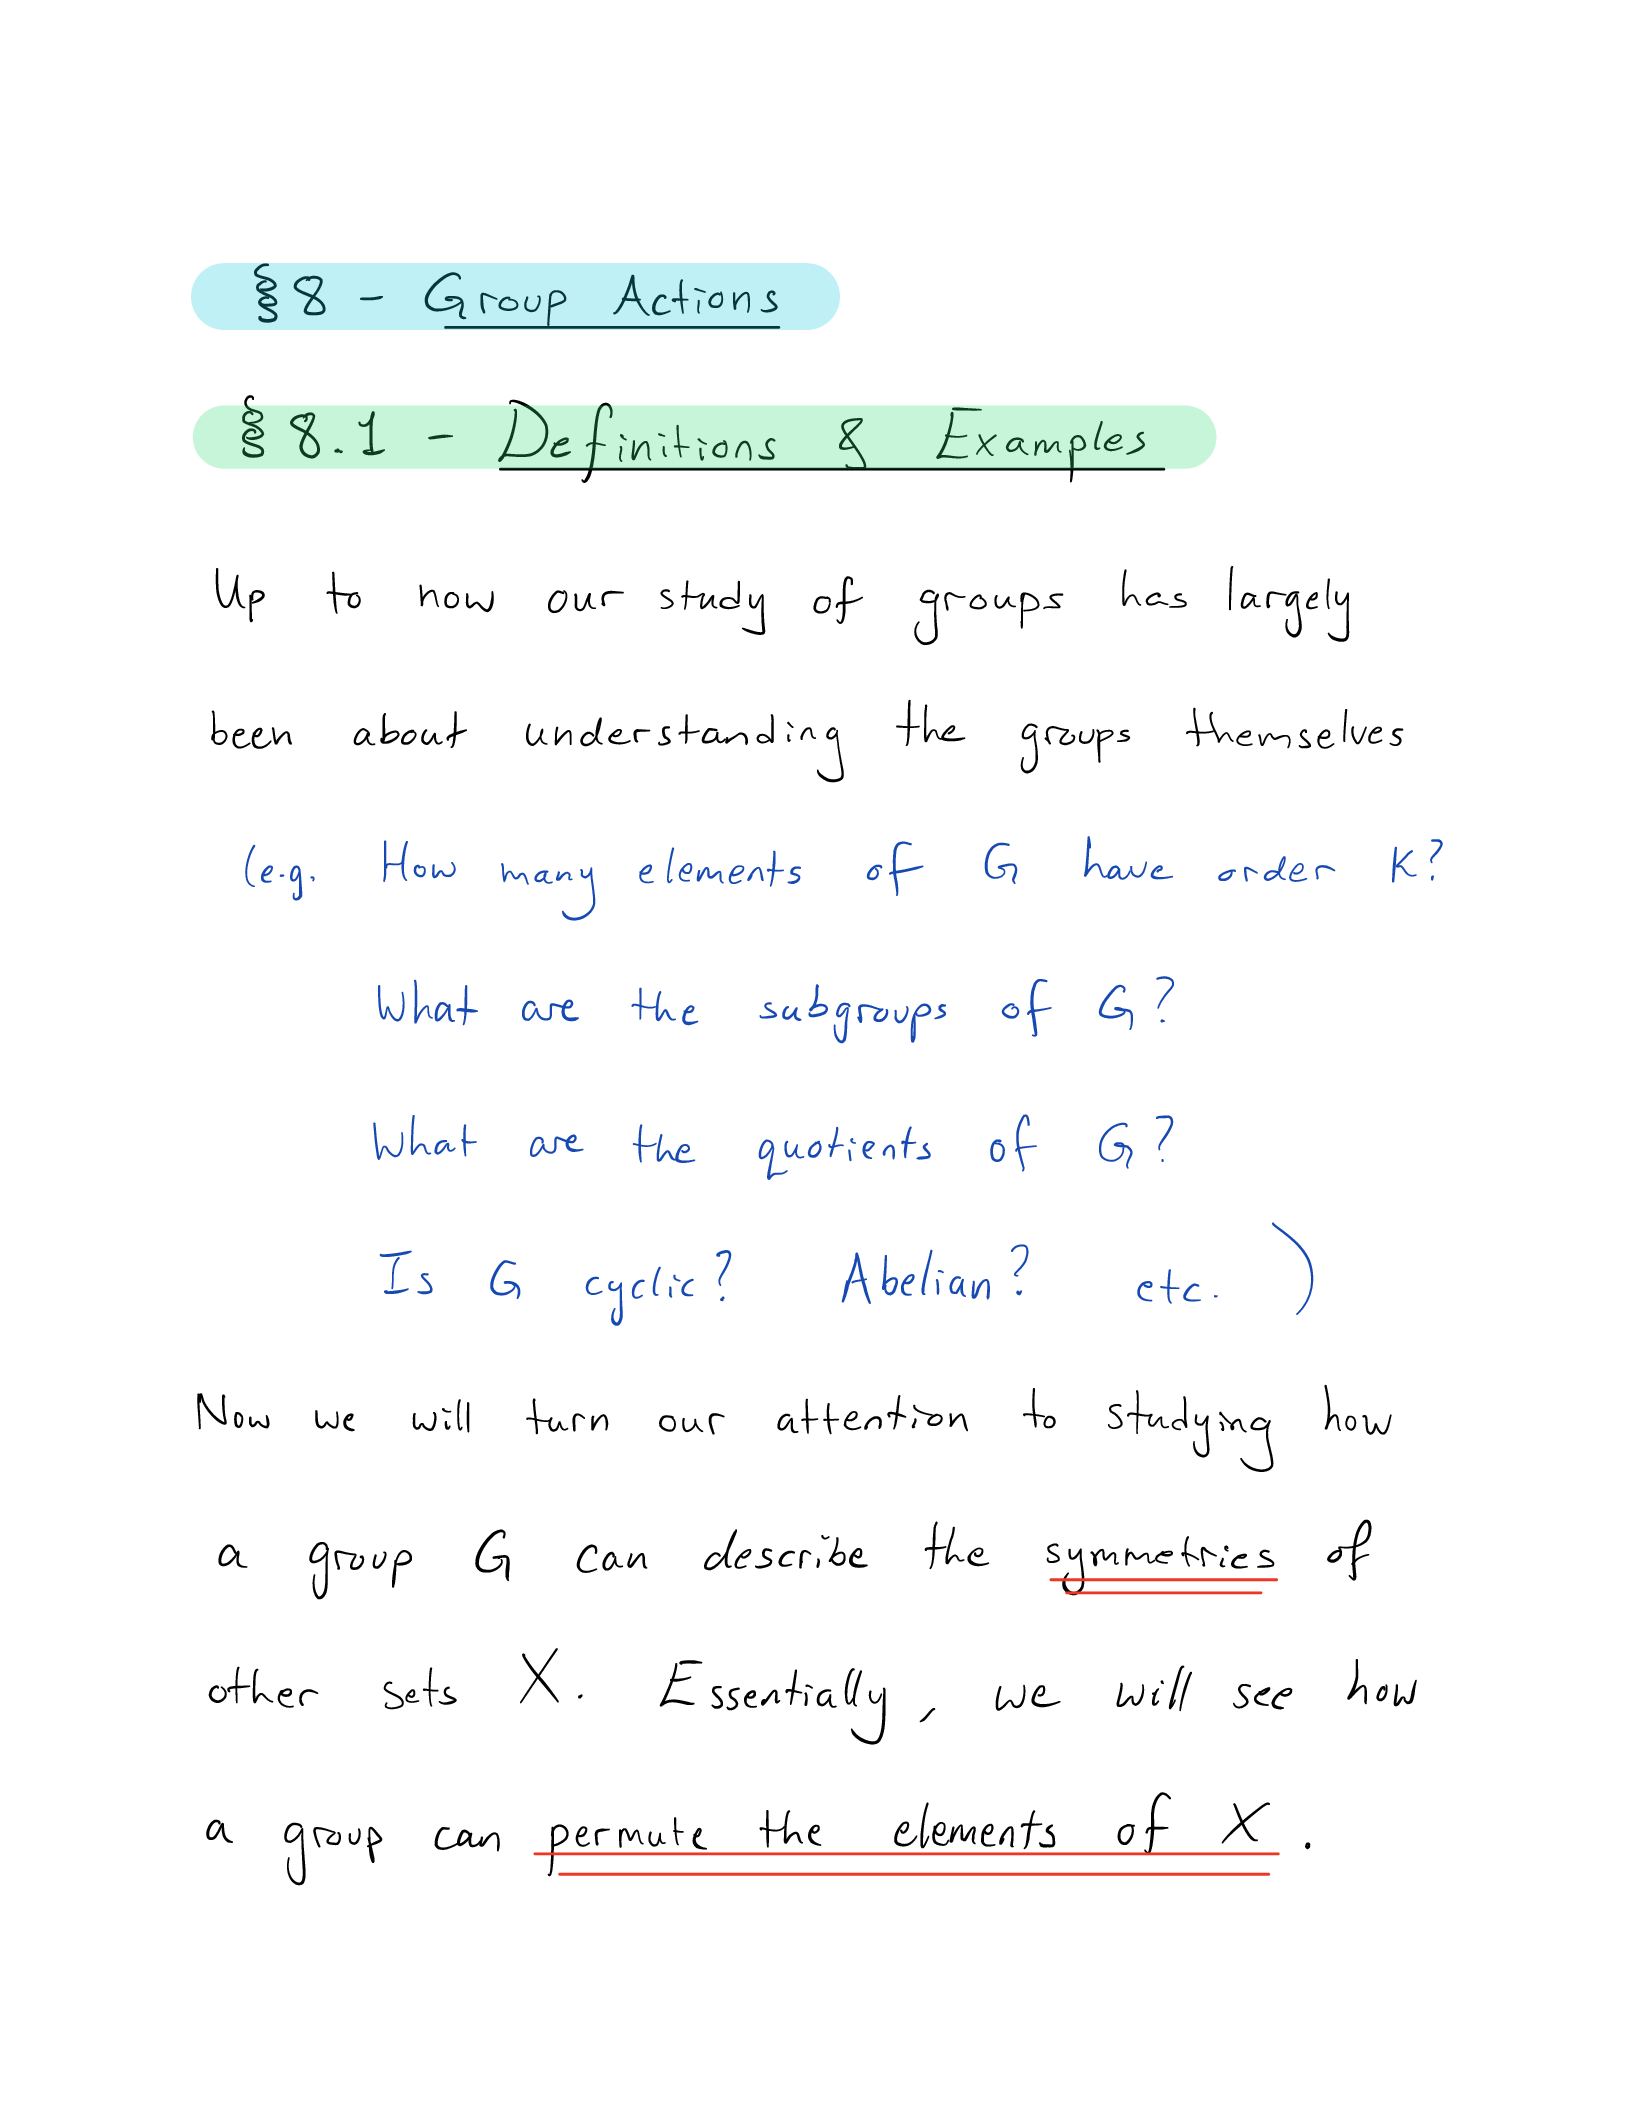 § 8 - Group Actions
§ 8.1 - Definitions & Examples
Up to now our study of groups has largely
been about understanding the groups themselves
(e.g. How many elements of G have order K?
What are the subgroups of G?
What are the quotients of G?
Is G cyclic? Abelian? etc. )
Now we will turn our attention to studying how
a group G can describe the symmetries of
other sets X. Essentially, we will see how
a group can permute the elements of X.